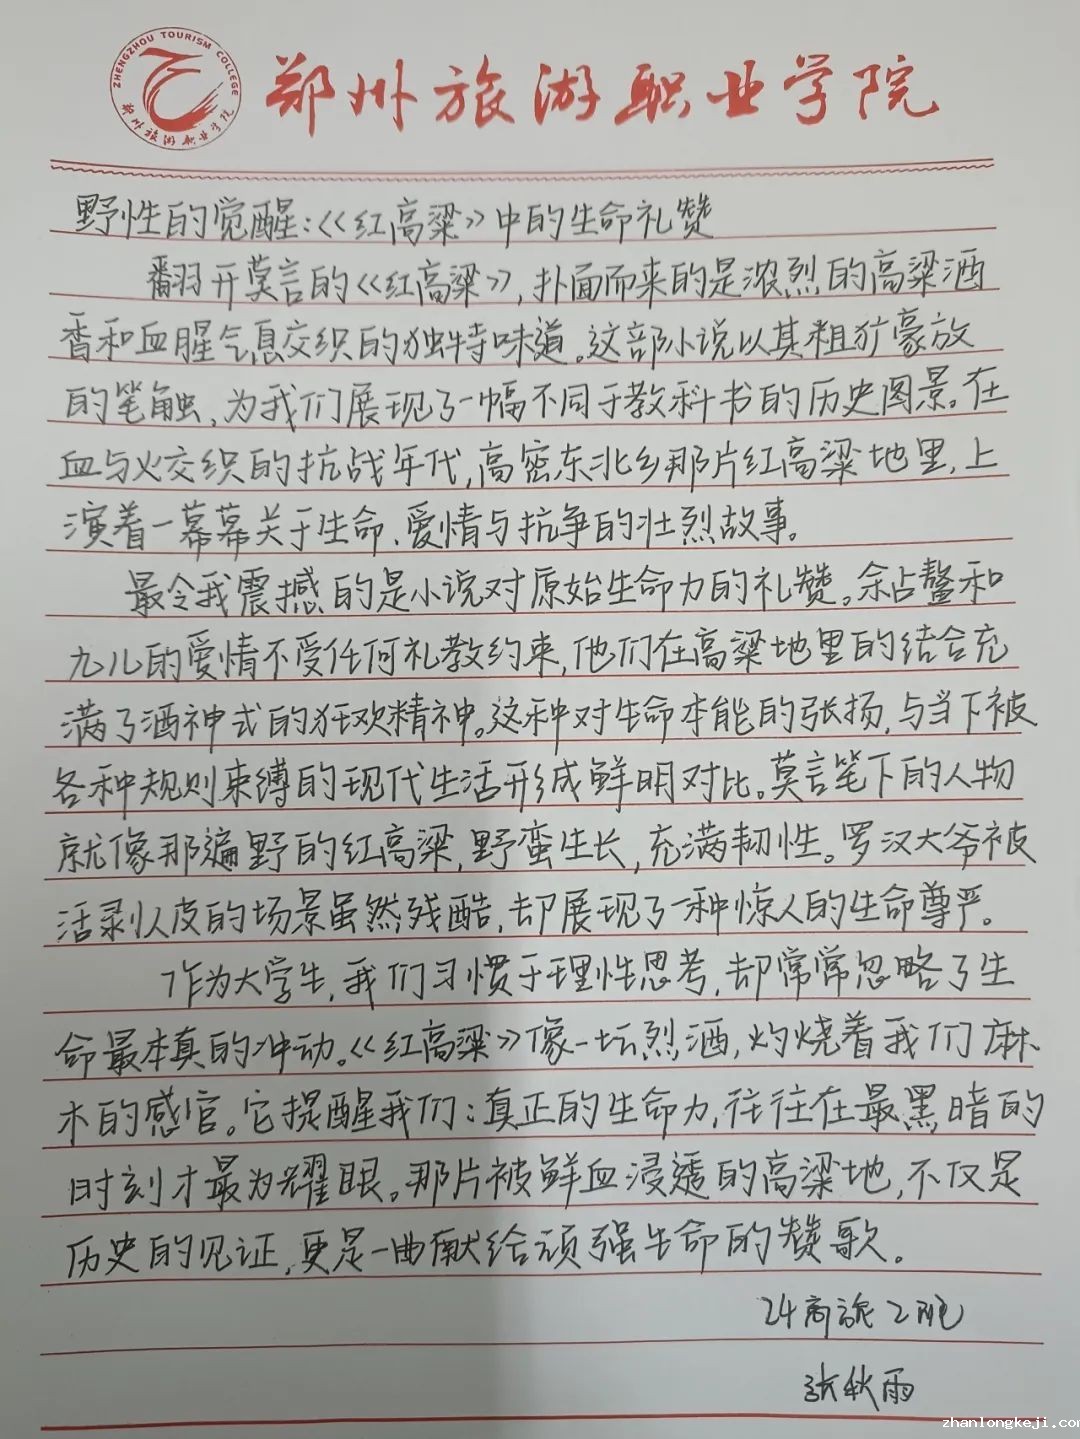 ZHENGZHOU TOURISM COLLEGE
郑州旅游职业学院
郑州旅游职业学院
野性的觉醒:《红高粱》中的生命礼赞
翻开莫言的《红高粱》,扑面而来的是浓烈的高粱酒
香和血腥气息交织的独特味道。这部小说以其粗犷豪放
的笔触,为我们展现了一幅不同于教科书的历史图景。在
血与火交织的抗战年代,高密东北乡那片红高粱地里,上
演着一幕幕关于生命、爱情与抗争的壮烈故事。
最令我震撼的是小说对原始生命力的礼赞。余占鳌和
九儿的爱情不受任何礼教约束,他们在高粱地里的结合充
满了酒神式的狂欢精神。这种对生命本能的张扬,与当下被
各种规则束缚的现代生活形成鲜明对比。莫言笔下的人物
就像那遍野的红高粱,野蛮生长,充满韧性。罗汉大爷被
活剥人皮的场景虽然残酷,却展现了一种惊人的生命尊严。
作为大学生,我们习惯于理性思考,却常常忽略了生
命最本真的冲动。《红高粱》像一坛烈酒,灼烧着我们麻
木的感官。它提醒我们:真正的生命力,往往在最黑暗的
时刻才最为耀眼。那片被鲜血浸透的高粱地,不仅是
历史的见证,更是一曲献给顽强生命的赞歌。
24商旅2班
张秋雨
zhanlongkeji.com